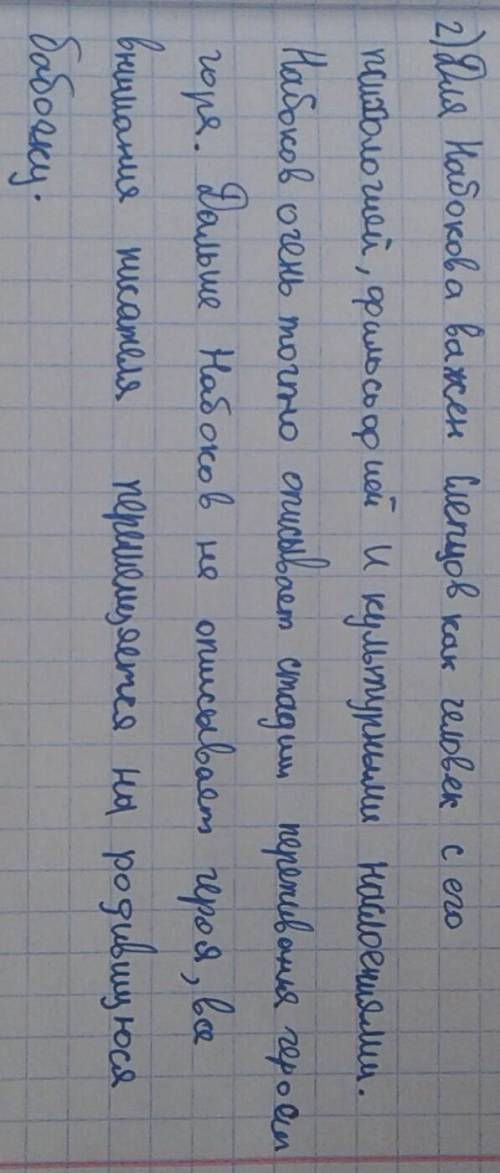 2) Для Набокова важен Слепцов как человек с его
психологией, фильсофией и культурными наслоениями.
Набоков очень точно описывает стадии переживания героем
горя. Дальше Набоков не описывает героя, все
внимания писателя перемещяется на родившуюся
бабочку.